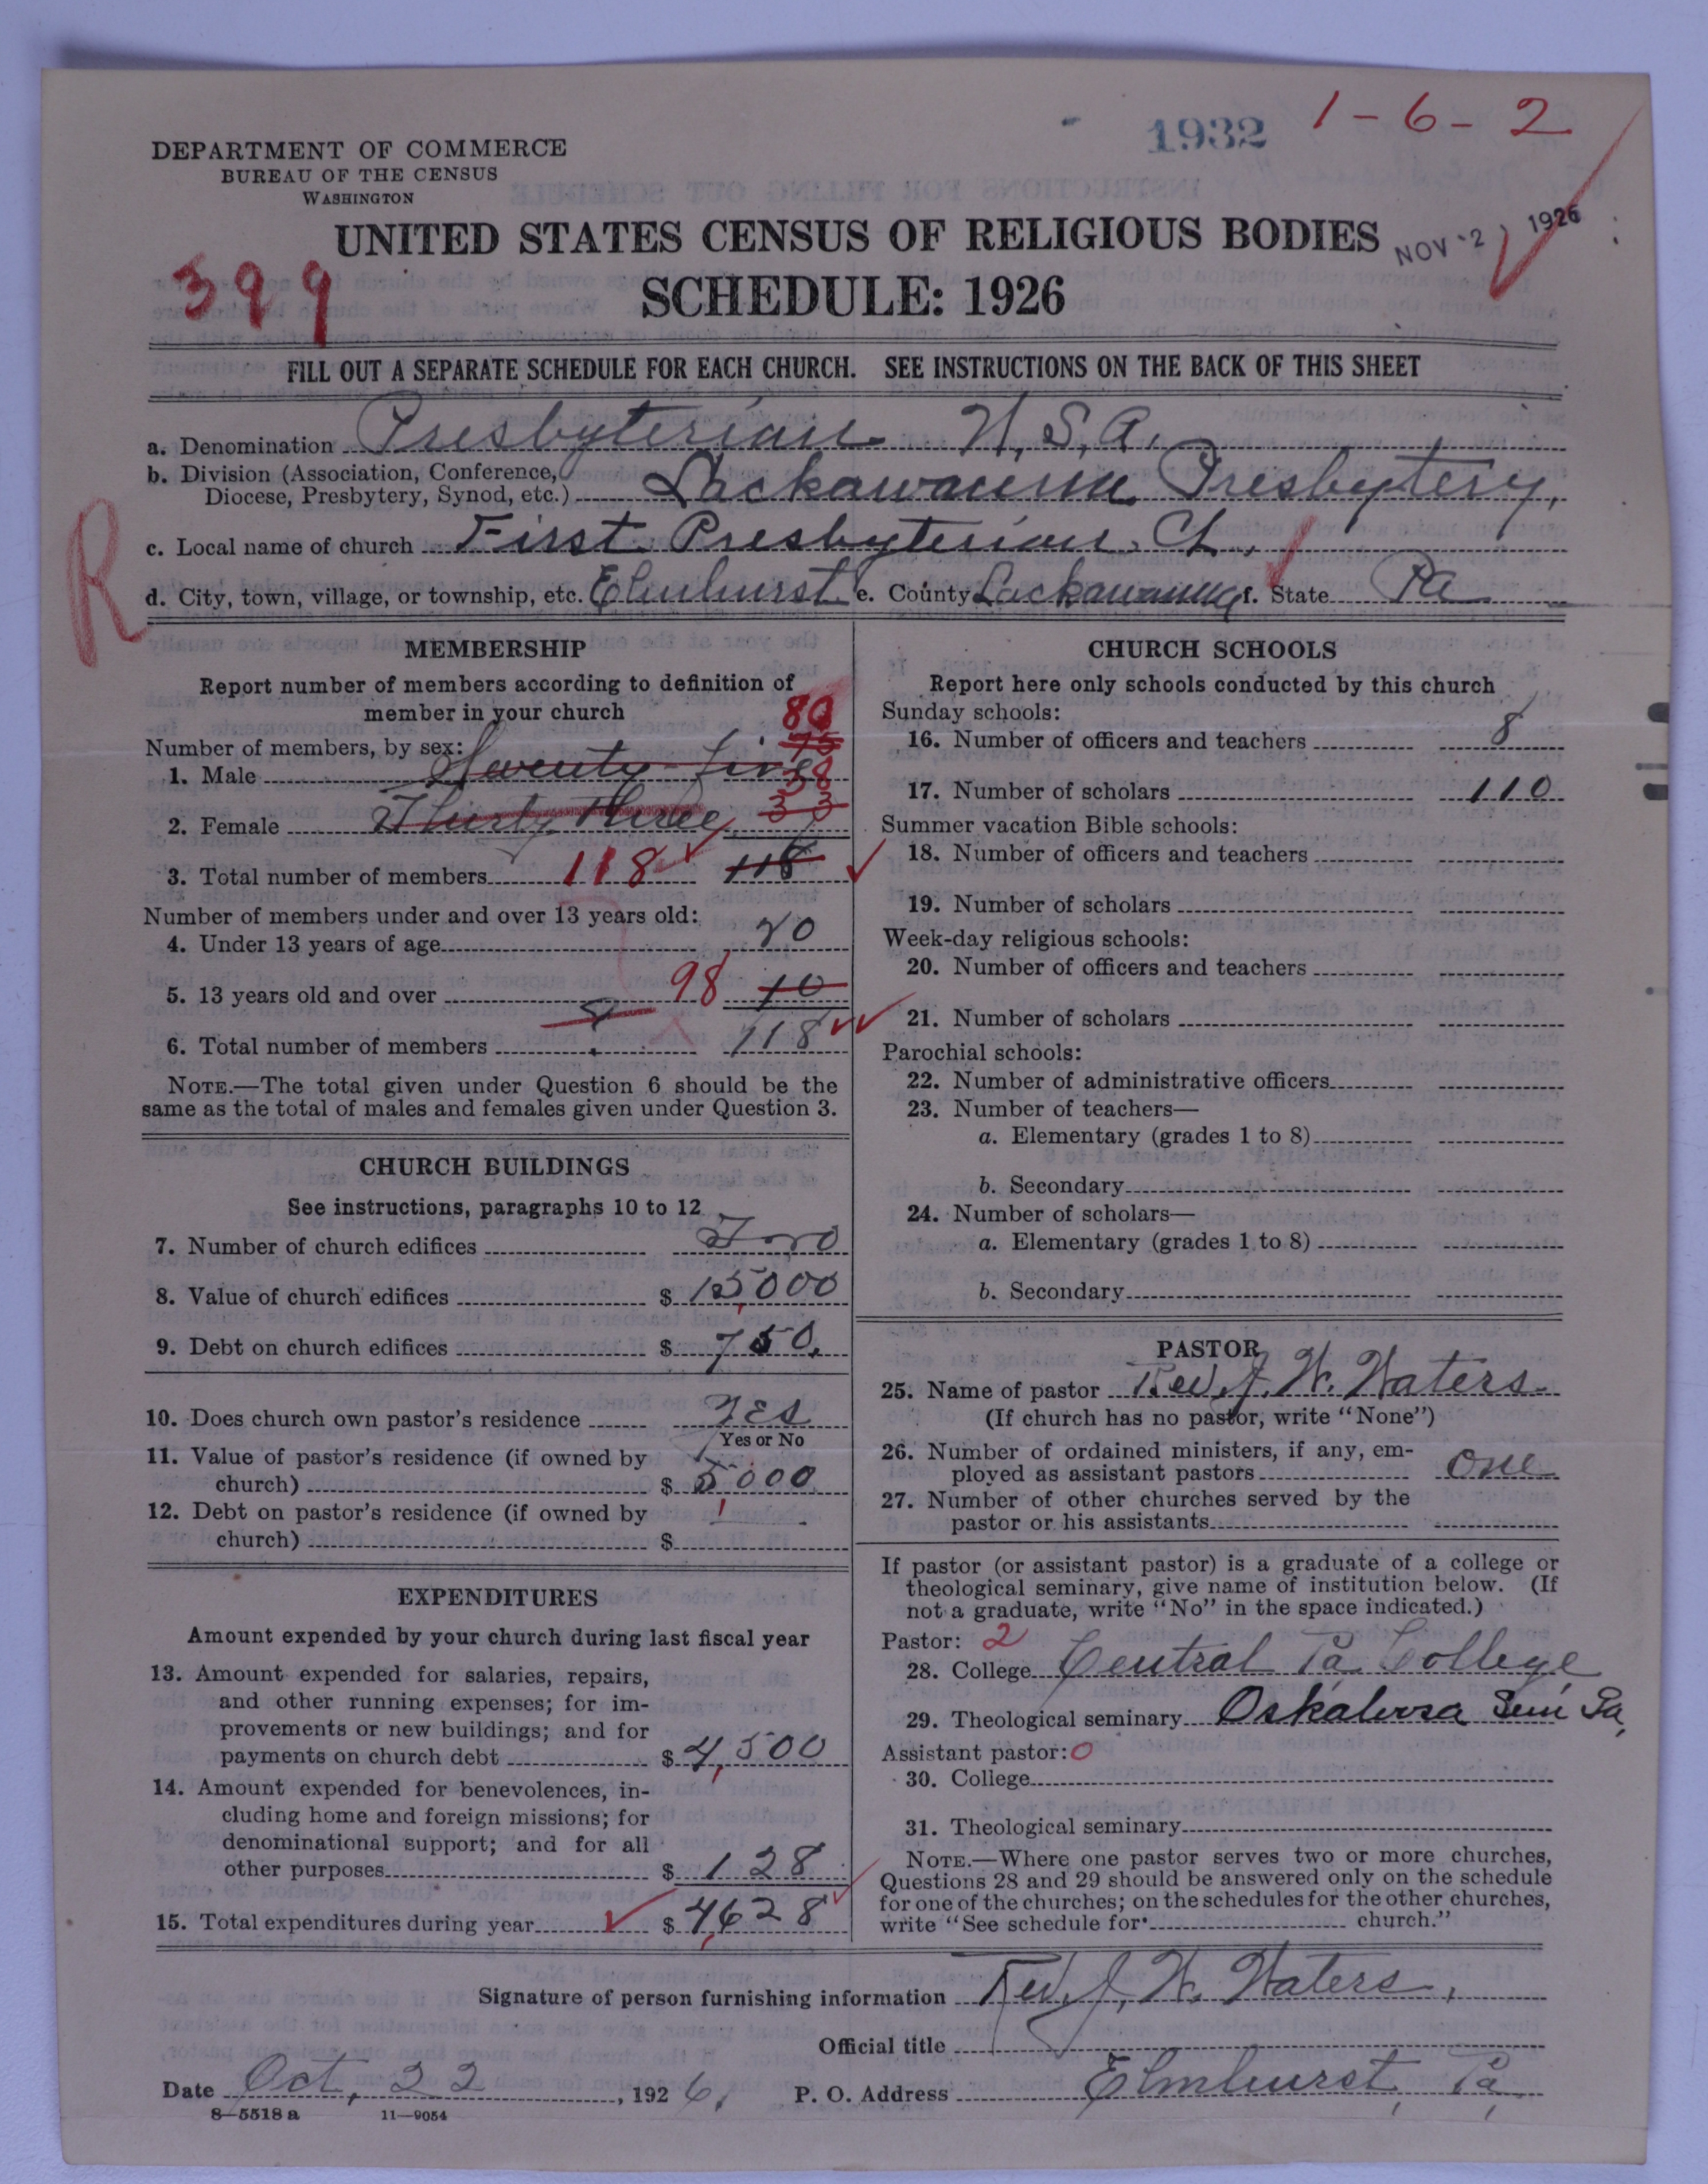 1932 1-6-2
DEPARTMENT OF COMMERCE
BUREAU OF THE CENSUS
WASHINGTON
UNITED STATES CENSUS OF RELIGIOUS BODIES
NOV 2 1926
399
SCHEDULE: 1926
FILL OUT A SEPARATE SCHEDULE FOR EACH CHURCH. SEE INSTRUCTIONS ON THE BACK OF THIS SHEET
a. Denomination Presbyterian U.S.A.
b. Division (Association, Conference,
Diocese, Presbytery, Synod, etc.) Lackawanna Presbytery,
c. Local name of church First Presbyterian Ch.,
R
d. City, town, village, or township, etc. Elmhurst e. County Lackawanna f. State Pa
MEMBERSHIP
Report number of members according to definition of
member in your church
80
Number of members, by sex: 75
1. Male Seventy-five 38
2. Female Thirty Three 33
3. Total number of members 118 118
Number of members under and over 13 years old:
4. Under 13 years of age 20
5. 13 years old and over 98 10
8
6. Total number of members 118
NOTE.—The total given under Question 6 should be the
same as the total of males and females given under Question 3.
CHURCH BUILDINGS
See instructions, paragraphs 10 to 12
7. Number of church edifices Two
8. Value of church edifices $ 15,000
9. Debt on church edifices $ 750.
10. Does church own pastor's residence Yes
Yes or No
11. Value of pastor's residence (if owned by
church) $ 5,000
12. Debt on pastor's residence (if owned by
church) $
EXPENDITURES
Amount expended by your church during last fiscal year
13. Amount expended for salaries, repairs,
and other running expenses; for im-
provements or new buildings; and for
payments on church debt $ 4,500
14. Amount expended for benevolences, in-
cluding home and foreign missions; for
denominational support; and for all
other purposes $ 128
15. Total expenditures during year $ 4,628
CHURCH SCHOOLS
Report here only schools conducted by this church
Sunday schools:
16. Number of officers and teachers 8
17. Number of scholars 110
Summer vacation Bible schools:
18. Number of officers and teachers
19. Number of scholars
Week-day religious schools:
20. Number of officers and teachers
21. Number of scholars
Parochial schools:
22. Number of administrative officers
23. Number of teachers—
a. Elementary (grades 1 to 8)
b. Secondary
24. Number of scholars—
a. Elementary (grades 1 to 8)
b. Secondary
PASTOR
25. Name of pastor Rev. J. W. Waters
(If church has no pastor, write "None")
26. Number of ordained ministers, if any, em-
ployed as assistant pastors one
27. Number of other churches served by the
pastor or his assistants
If pastor (or assistant pastor) is a graduate of a college or
theological seminary, give name of institution below. (If
not a graduate, write "No" in the space indicated.)
Pastor: 2
28. College Central Pa. College
29. Theological seminary Oskaloosa Sem Ia,
Assistant pastor: 0
30. College
31. Theological seminary
NOTE.—Where one pastor serves two or more churches,
Questions 28 and 29 should be answered only on the schedule
for one of the churches; on the schedules for the other churches,
write "See schedule for church."
Signature of person furnishing information Rev. J. W. Waters,
Official title
Date Oct, 22, 1926. P. O. Address Elmhurst, Pa,
8—5518 a 11—9054